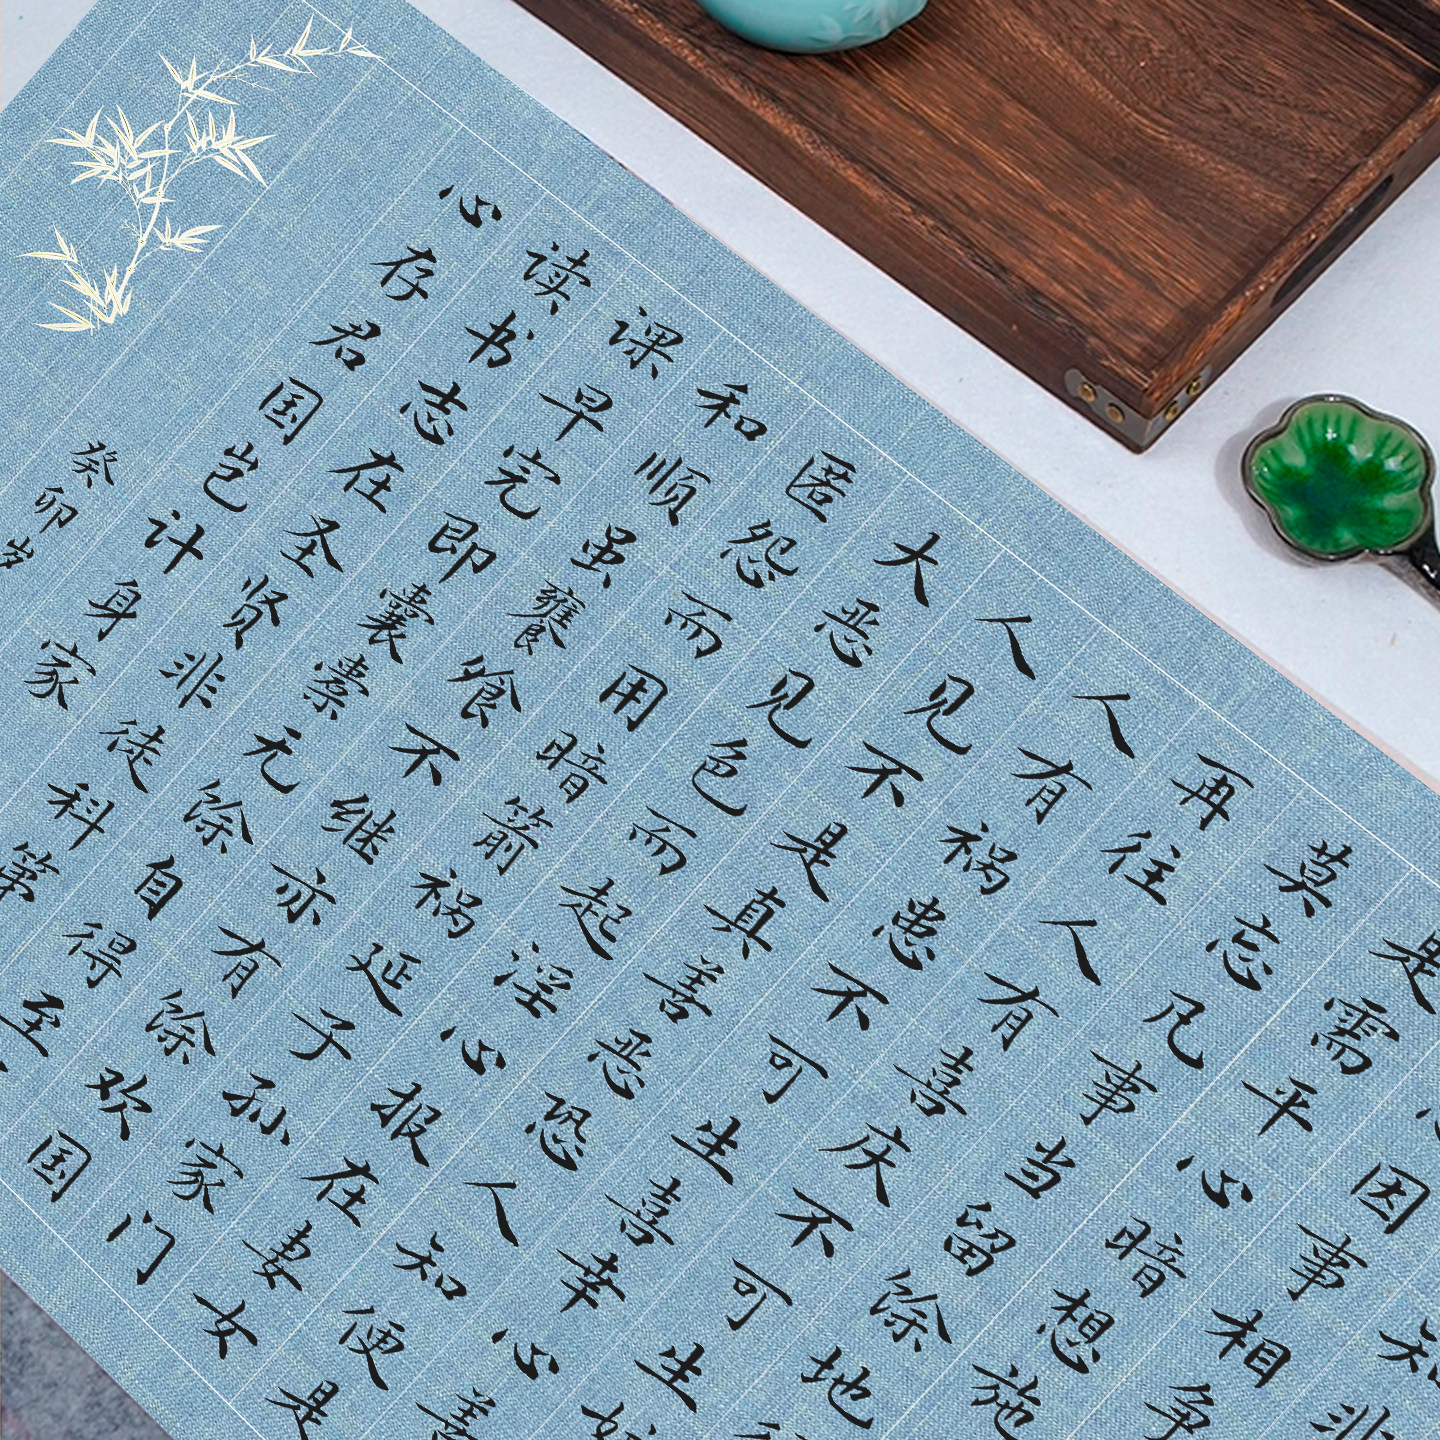 知非
因事相争
是需平心暗想施
莫忘凡事当留馀地
再往人有喜庆不可生妒
人有祸患不可生喜幸心善
人见不是真善恶恐人知便是
大恶见色而起淫心报在妻女
匿怨而用暗箭祸延子孙家门
和顺虽饔飧不继亦有馀欢国
课早完即囊橐无馀自得至
读书志在圣贤非徒科第
心存君国岂计身家
癸卯岁